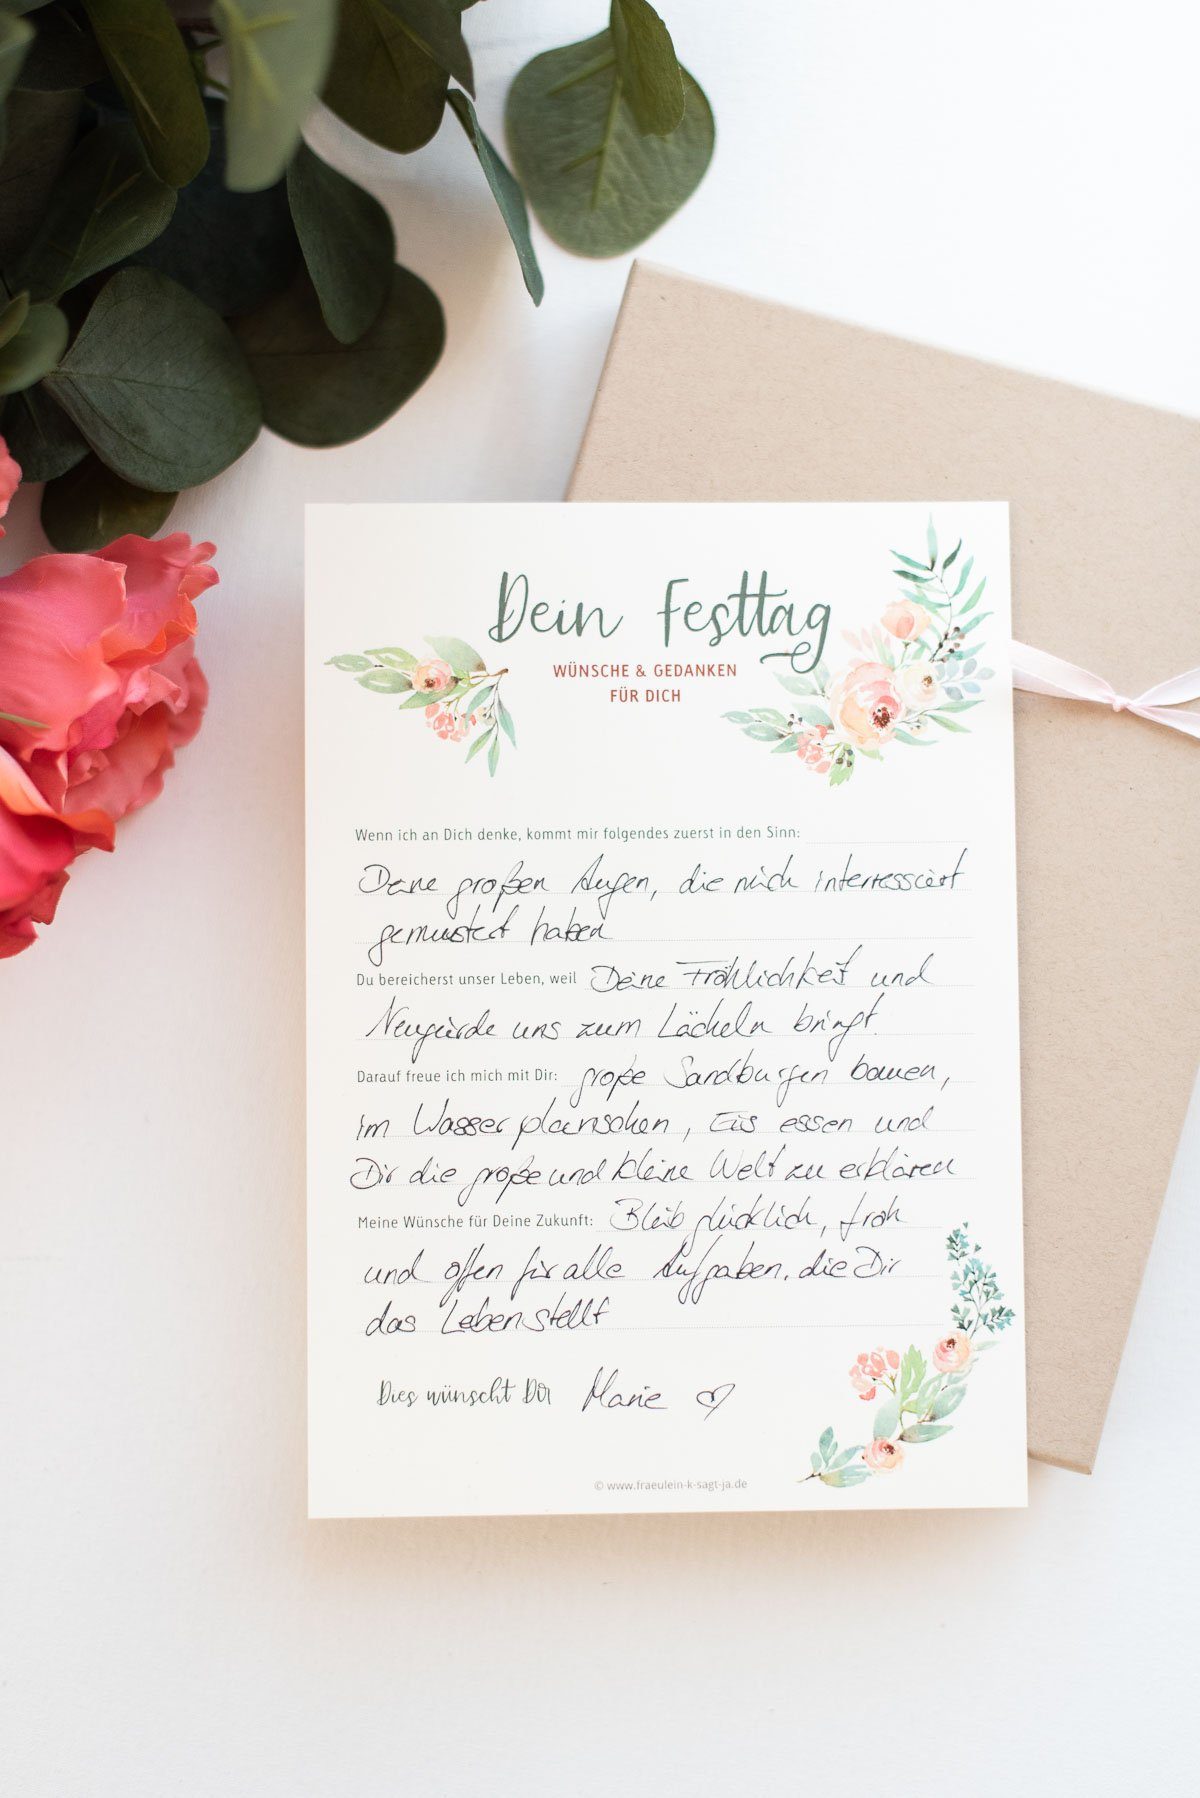 Dein Festtag
WÜNSCHE & GEDANKEN
FÜR DICH
Wenn ich an Dich denke, kommt mir folgendes zuerst in den Sinn:
Deine großen Augen, die mich interressiert
gemustert haben
Du bereicherst unser Leben, weil Deine Fröhlichkeit und
Neugierde uns zum Lächeln bringt.
Darauf freue ich mich mit Dir: große Sandburgen bauen,
im Wasser planschen, Eis essen und
Dir die große und kleine Welt zu erklären
Meine Wünsche für Deine Zukunft: Bleib glücklich, froh
und offen für alle Aufgaben, die Dir
das Leben stellt
Dies wünscht Dir Marie ♡
© www.fraeulein-k-sagt-ja.de